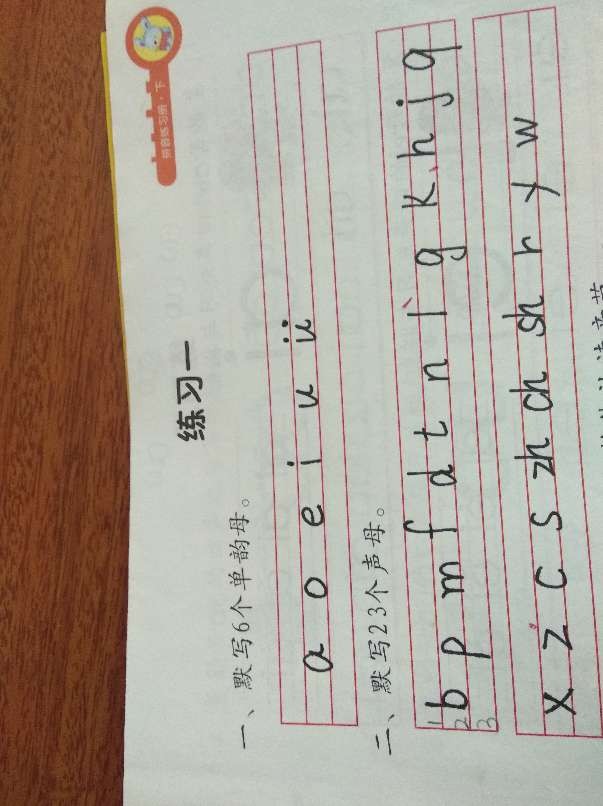 拼音练习册·下
练习一
一、默写6个单韵母。
a o e i u ü
二、默写23个声母。
1
2
3
b p m f d t n l g k h j q
x z c s zh ch sh r y w